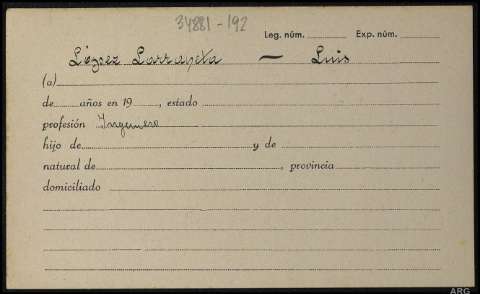 34881-192
Leg. núm. Exp. núm.
López Larrañeta — Luis
(a)
de años en 19 , estado
profesión Ingeniero
hijo de y de
natural de , provincia
domiciliado
ARG